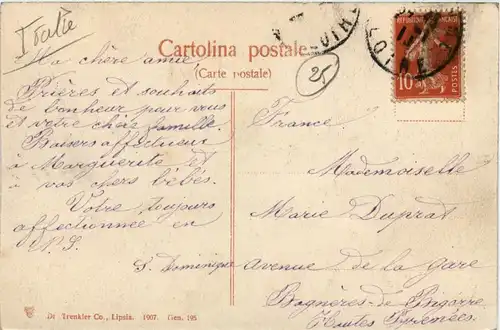 Italie
Cartolina postale
(Carte postale)
25
LOIRE
LOIRE
REPUBLIQUE FRANÇAISE
10
POSTES
Ma chère amie,
Prières et souhaits
de bonheur pour vous
et votre chère famille.
Baisers affectueux
à Marguerite et
à vos chers bébés.
Votre toujours
affectionnée en
N. S.
S. Dominique
France.
Mademoiselle
Marie Duprat
Avenue de la Gare
Bagnères-de Bigorre
Hautes Pyrénées.
Dr Trenkler Co., Lipsia. 1907. Gen. 195